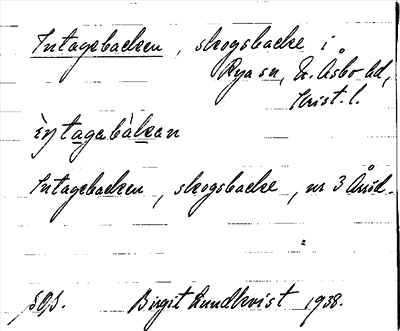 Intagebacken, skogsbacke i
Rya sn, N. Åsbo hd,
Krist. l.
ìntagabàkan
Intagebacken, skogsbacke, nr 3 Åvid.
Birgit Lundkvist 1938.